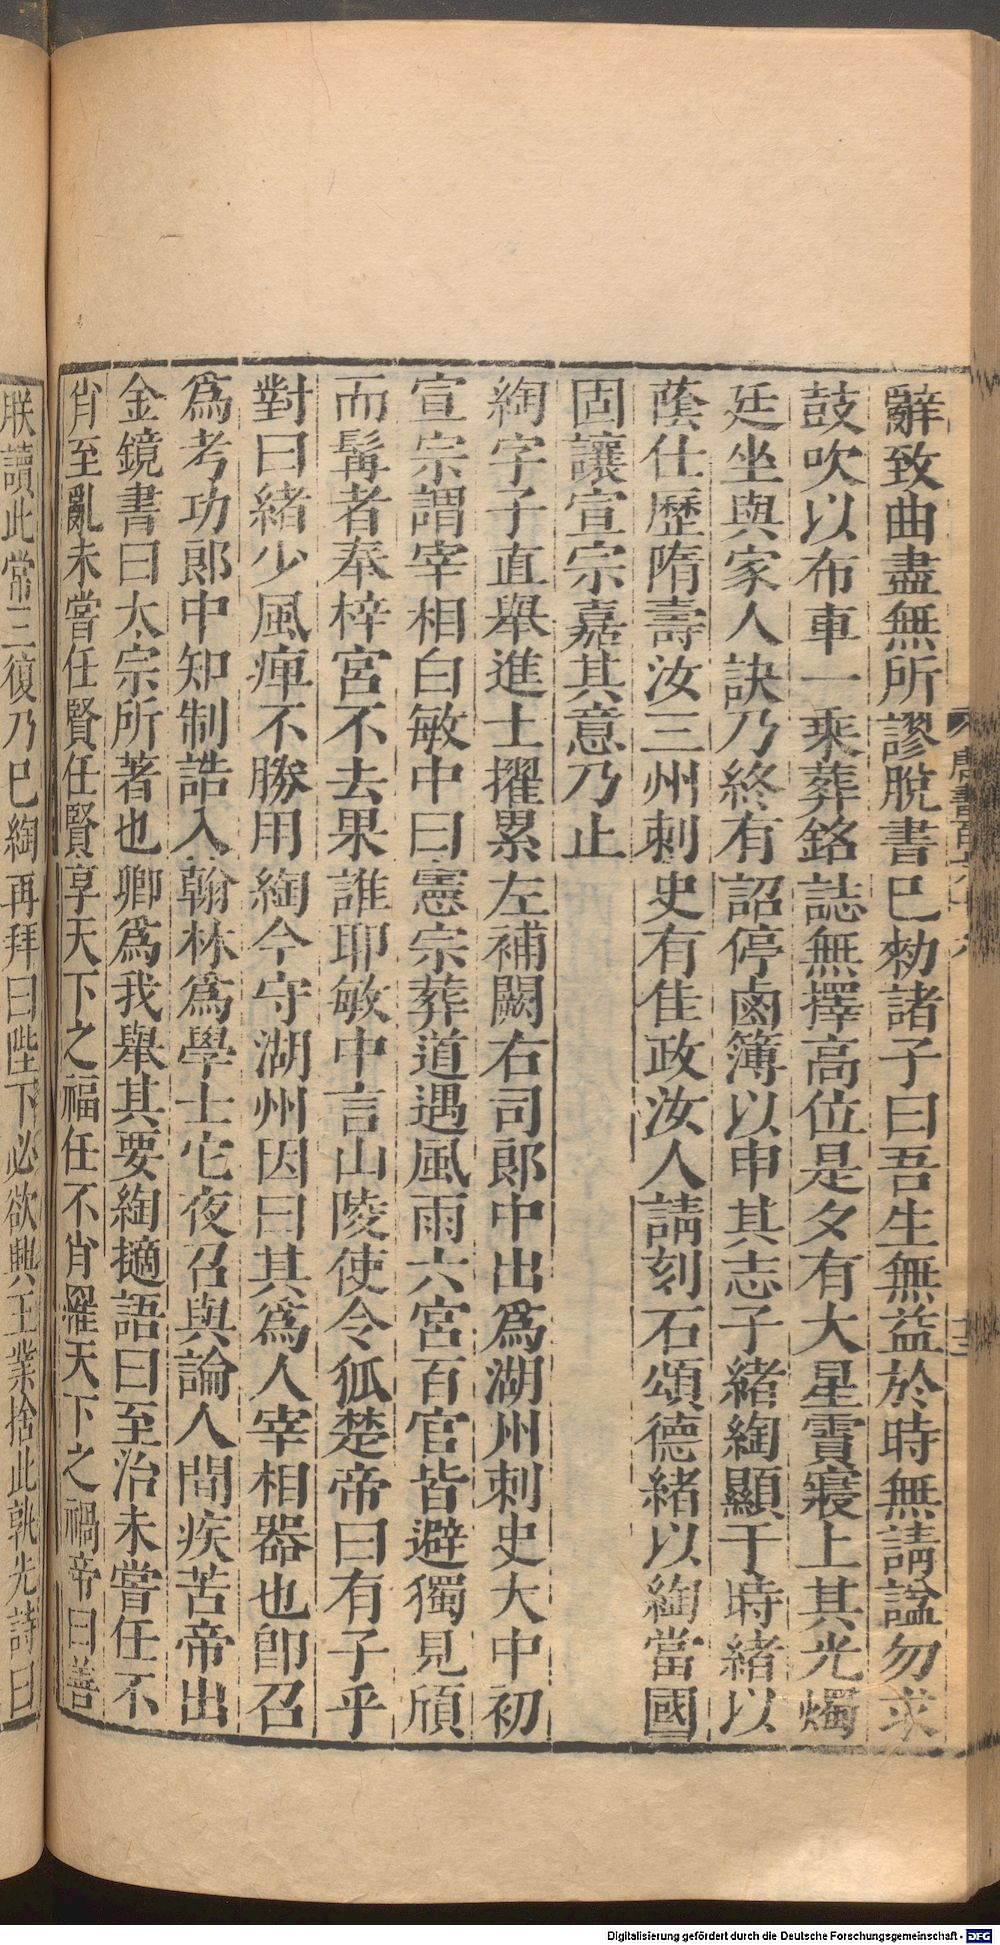 辭致曲盡無所謬脫書已勑諸子曰吾生無益於時無請謚勿求
鼓吹以布車一乘葬銘誌無擇高位是夕有大星霣寢上其光燭
廷坐與家人訣乃終有詔停鹵簿以申其志子緒綯顯于時緒以
蔭仕歷隋壽汝三州刺史有佳政汝人請刻石頌德緒以綯當國
固讓宣宗嘉其意乃止
綯字子直舉進士擢累左補闕右司郎中出爲湖州刺史大中初
宣宗謂宰相白敏中曰憲宗葬道遇風雨六宮百官皆避獨見頎
而髯者奉梓宮不去果誰耶敏中言山陵使令狐楚帝曰有子乎
對曰緒少風痺不勝用綯今守湖州因曰其爲人宰相器也卽召
爲考功郎中知制誥入翰林爲學士它夜召與論人間疾苦帝出
金鏡書曰太宗所著也卿爲我舉其要綯擿語曰至治未嘗任不
肖至亂未嘗任賢任賢享天下之福任不肖罹天下之禍帝曰善
朕讀此常三復乃已綯再拜曰陛下必欲興王業捨此孰先詩曰
Digitalisierung gefördert durch die Deutsche Forschungsgemeinschaft - DFG